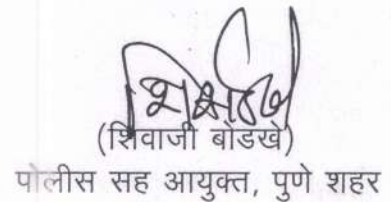 (शिवाजी बोडखे)
पोलीस सह आयुक्त, पुणे शहर